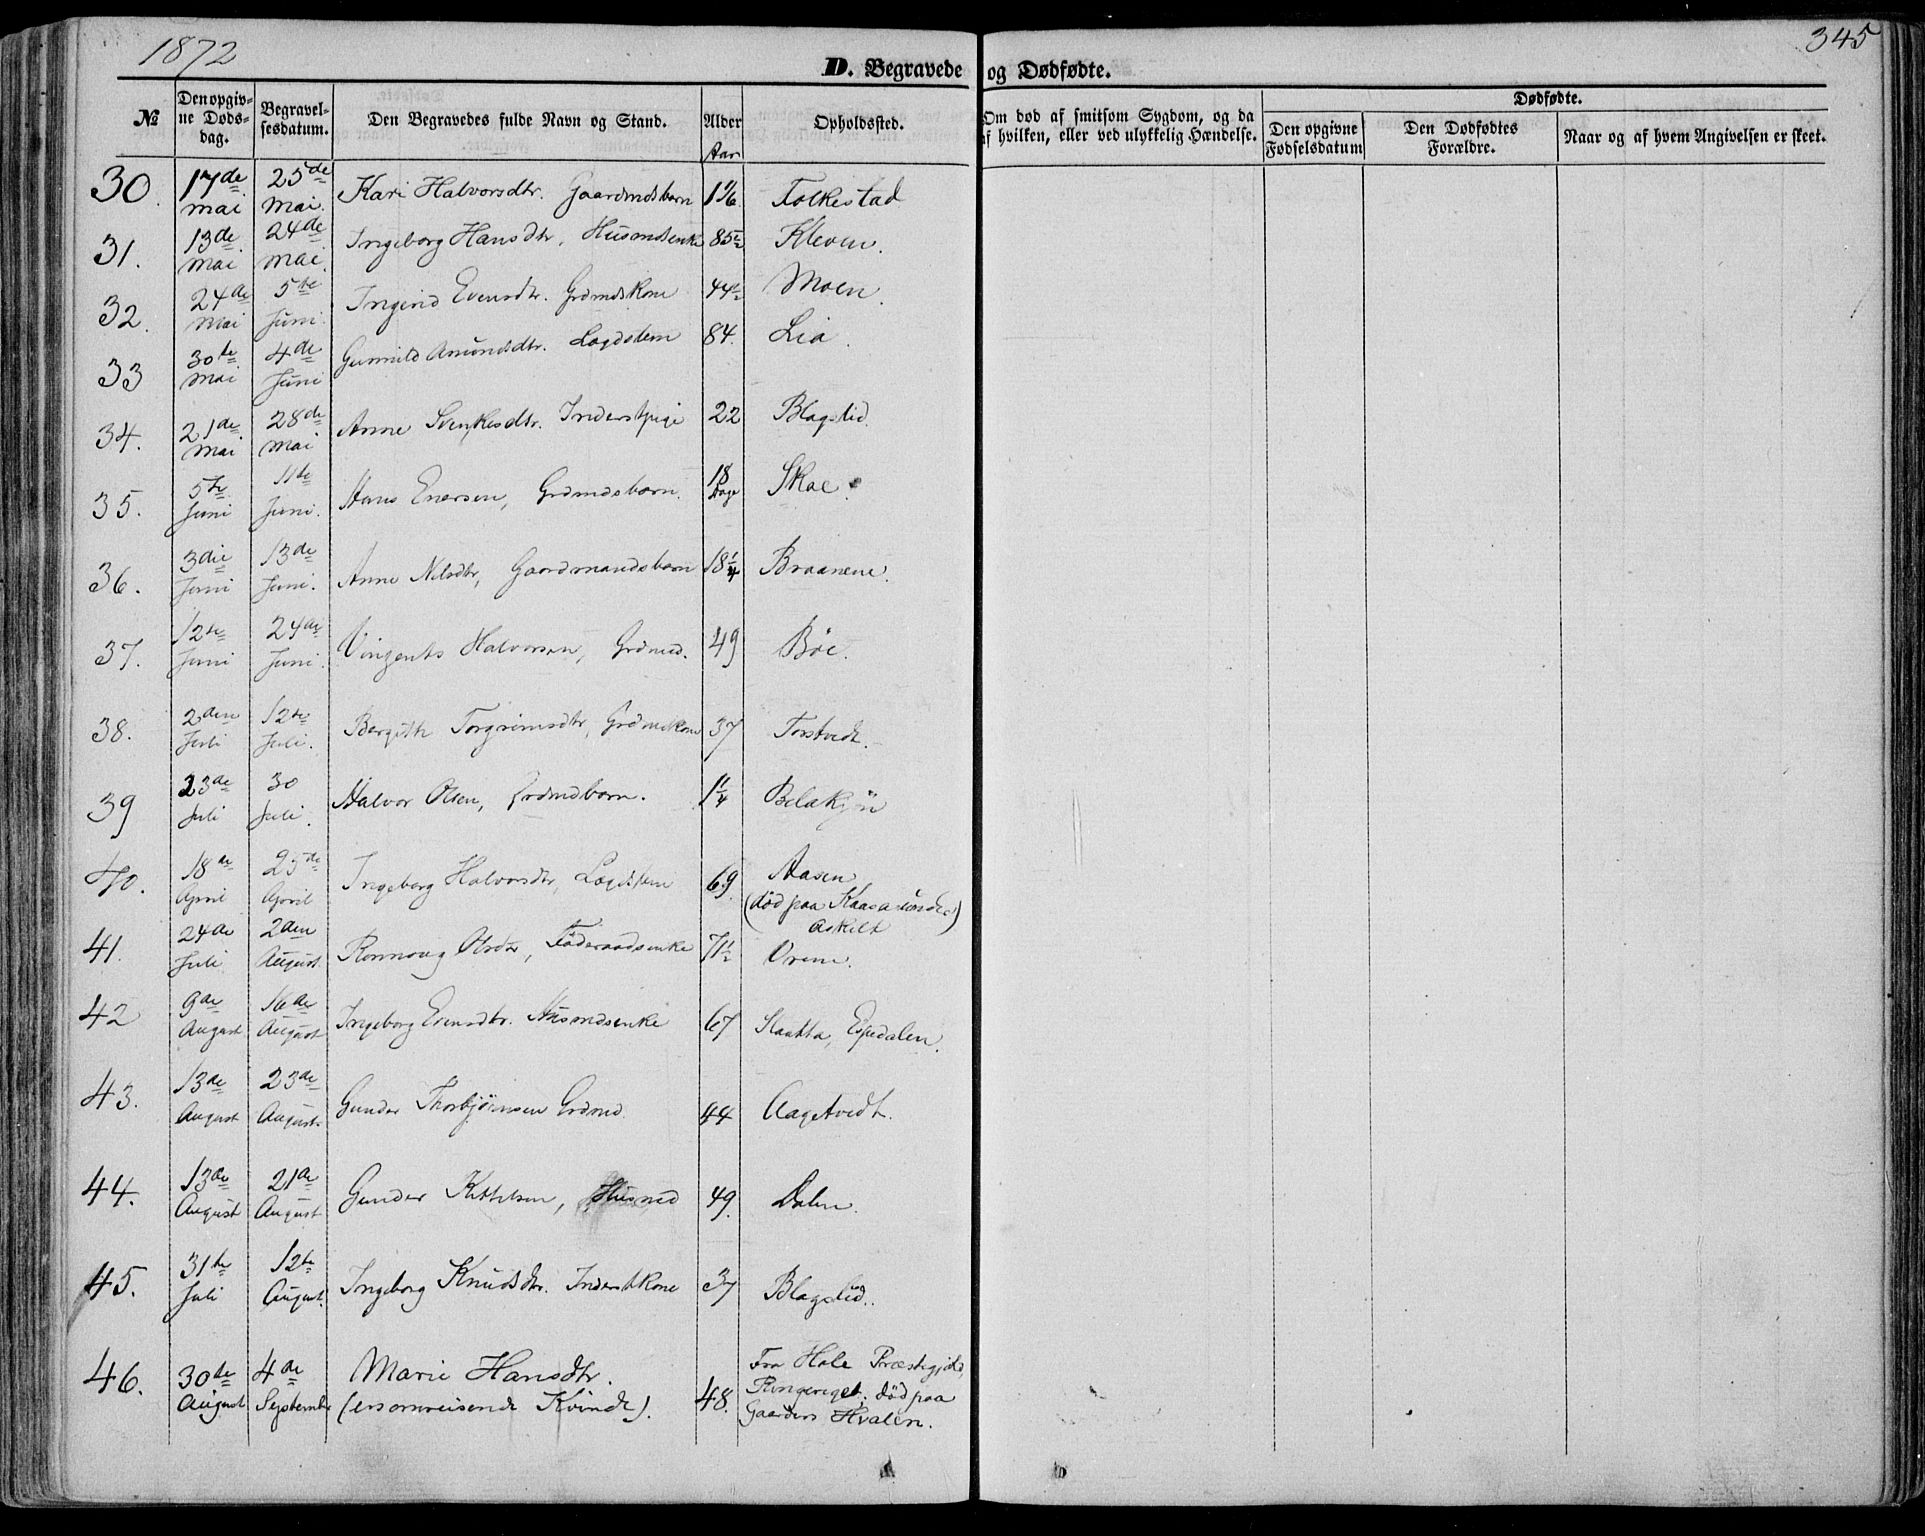 1872
345
D. Begravede og Dødfødte.
№ | Den opgivne Døds-dag. | Begravel-sesdatum. | Den Begravedes fulde Navn og Stand. | Alder | Opholdssted. | Om død af smitsom Sygdom, og da af hvilken, eller ved ulykkelig Hændelse. | Dødfødte. | Den opgivne Fødselsdatum | Den Dødfødtes Forældre. | Naar og af hvem Angivelsen er skeet.
Aar
30. | 17de Mai | 25de Mai. | Kari Halvorsdtr. Gaardmdsbarn | 1 1/6 | Folkestad
31. | 13de Mai | 24de Mai. | Ingeborg Hansdtr, Husmdsenke | 85 1/2 | Kleven.
32. | 24de Mai | 5te Juni | Ingerid Evensdtr. Grdmdskone | 44 1/2 | Moen.
33 | 30te Mai | 4de Juni | Gunnild Amundsdtr. Lægdslem | 84. | Lia.
34. | 21de Mai | 28de Mai | Anne Svenkesdtr. Inderstpige | 22 | Blagslid.
35. | 5te Juni | 11te Juni. | Hans Enersen, Grdmdsbarn. | 18 Dage | Skoe.
36. | 3die Juni | 13de Juni. | Anne Nilsdtr, Gaardmandsbarn | 18 1/4 | Braanene.
37. | 12te Juni | 24de Juni. | Vinzents Halvorsen, Grdmd. | 49 | Bøe.
38. | 2den Juli | 12te Juli. | Bergith Torgrimsdtr, Grdmdkone | 37 | Torstvedt.
39 | 23de Juli | 30 Juli. | Halvor Olsen, Grdmdbarn. | 1 1/4 | 
40. | 18de April | 25de April | Ingeborg Halvorsdtr, Lægdslem | 69. | Aasen (død paa Askilt
41. | 24de Juli | 2den August | Ronnoug Olsdtr, Føderaadsenke | 71 1/2 | Orene.
42 | 9de August | 16de August | Ingeborg Evensdtr. Husmdsenke | 67 | Slaatta, Espedalen.
43. | 13de August | 23de August | Gunder Thorbjørnsen Grdmd | 44 | Aagetvedt.
44. | 13de August | 21de August | Gunder Kittelsen, Husmd | 49. | Dalen.
45. | 31te Juli | 12te August. | Ingeborg Knudsdtr. Inderstkone | 37 | Blagslid.
46. | 30te August | 4de Septembr | Marie Hansdtr. (en omreisende Kvinde). | 48. | Fra Hole Præstegjeld, Ringeriget; død paa Gaarden Hvalen.